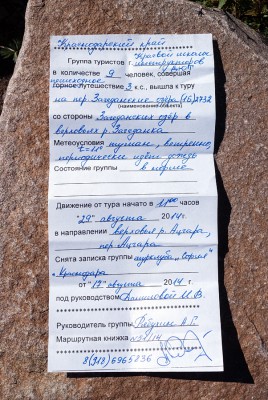 Краснодарский край
Группа туристов г. Краевой школы
инструкторов
в количестве 9 человек, совершая
пешеходное
горное путешествие 3 к.с., вышла к туру
на пер. Загеданские озёра (1Б) 2732
(наименование объекта)
со стороны Загеданских озёр в
верховьях р. Загеданка
Метеоусловия туман, ветренно,
периодически идет дождь
Состояние группы в норме
Движение от тура начато в 11:00 часов
"29" августа 2014г.
в направлении верховья р. Ацгара,
пер. Ацгара
Снята записка группы турклуба
Краснодара
от "17" августа 2014 г.
под руководством И.В.
Руководитель группы
Маршрутная книжка
8(918)6965836